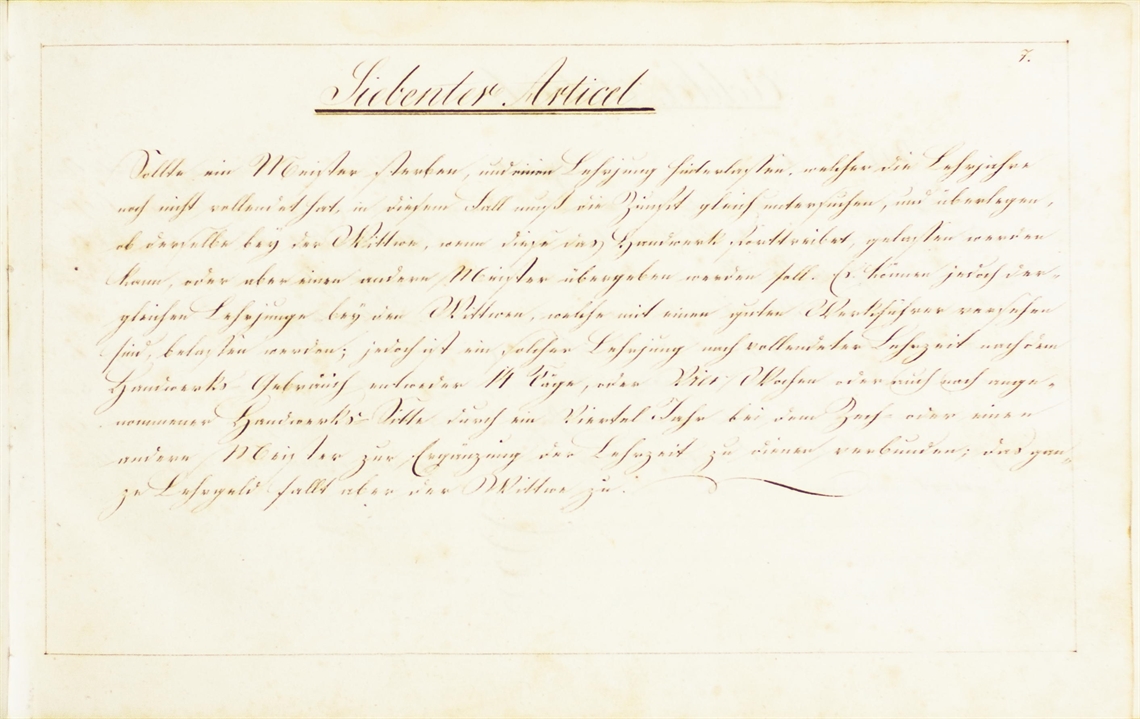 7.
Siebenter Articel
Sollte ein Meister sterben, und einen Lehrjung hinterlassen, welcher die Lehrjahre
noch nicht vollendet hat, in diesem Fall muß die Zunft gleich untersuchen, und überlegen,
ob derselbe bey der Wittwe, wenn diese das Handwerk forttreibet, gelassen werden
kann, oder aber einen andern Meister übergeben werden soll. Es können jedoch der-
gleichen Lehrjunge bey den Wittwen, welche mit einen guten Werkführer versehen
sind, belassen werden; jedoch ist ein solcher Lehrjung nach vollendeter Lehrzeit nach dem
Handwerks Gebrauch entweder 14 Täge, oder Vier Wochen oder auch nach ange-
nommener Handwerks Sitte durch ein Viertel Jahr bei dem Zech- oder einen
andern Meister zur Ergänzung der Lehrzeit zu dienen verbunden; das gan-
ze Lehrgeld fallt aber der Wittwe zu.